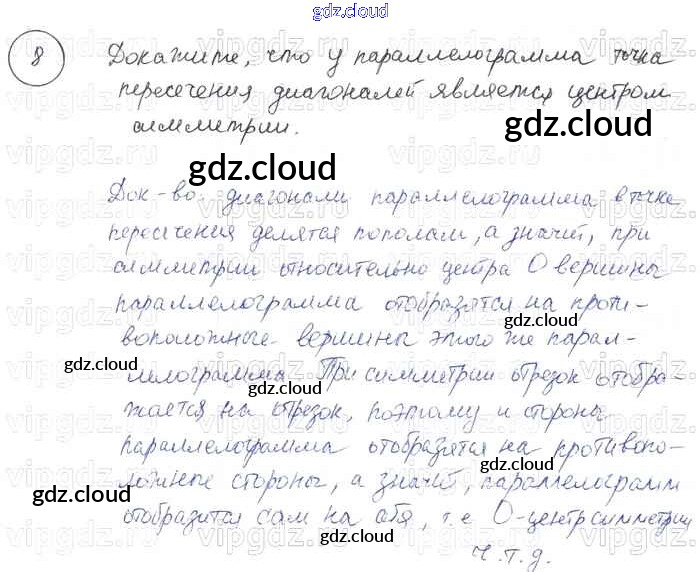 gdz.cloud
8 Докажите, что у параллелограмма точка
пересечения диагоналей является центром
симметрии.
gdz.cloud
Док-во: диагонали параллелограмма в точке
пересечения делятся пополам, а значит, при
симметрии относительно центра О вершины
параллелограмма отобразятся на проти-
воположные вершины этого же парал-
gdz.cloud gdz.cloud
лелограмма. При симметрии отрезок отобра-
жается на отрезок, поэтому и стороны
gdz.cloud
параллелограмма отобразятся на противопо-
gdz.cloud
ложные стороны, а значит, параллелограмм
gdz.cloud gdz.cloud
отобразится сам на себя, т.е О-центр симметрии
ч.т.д.